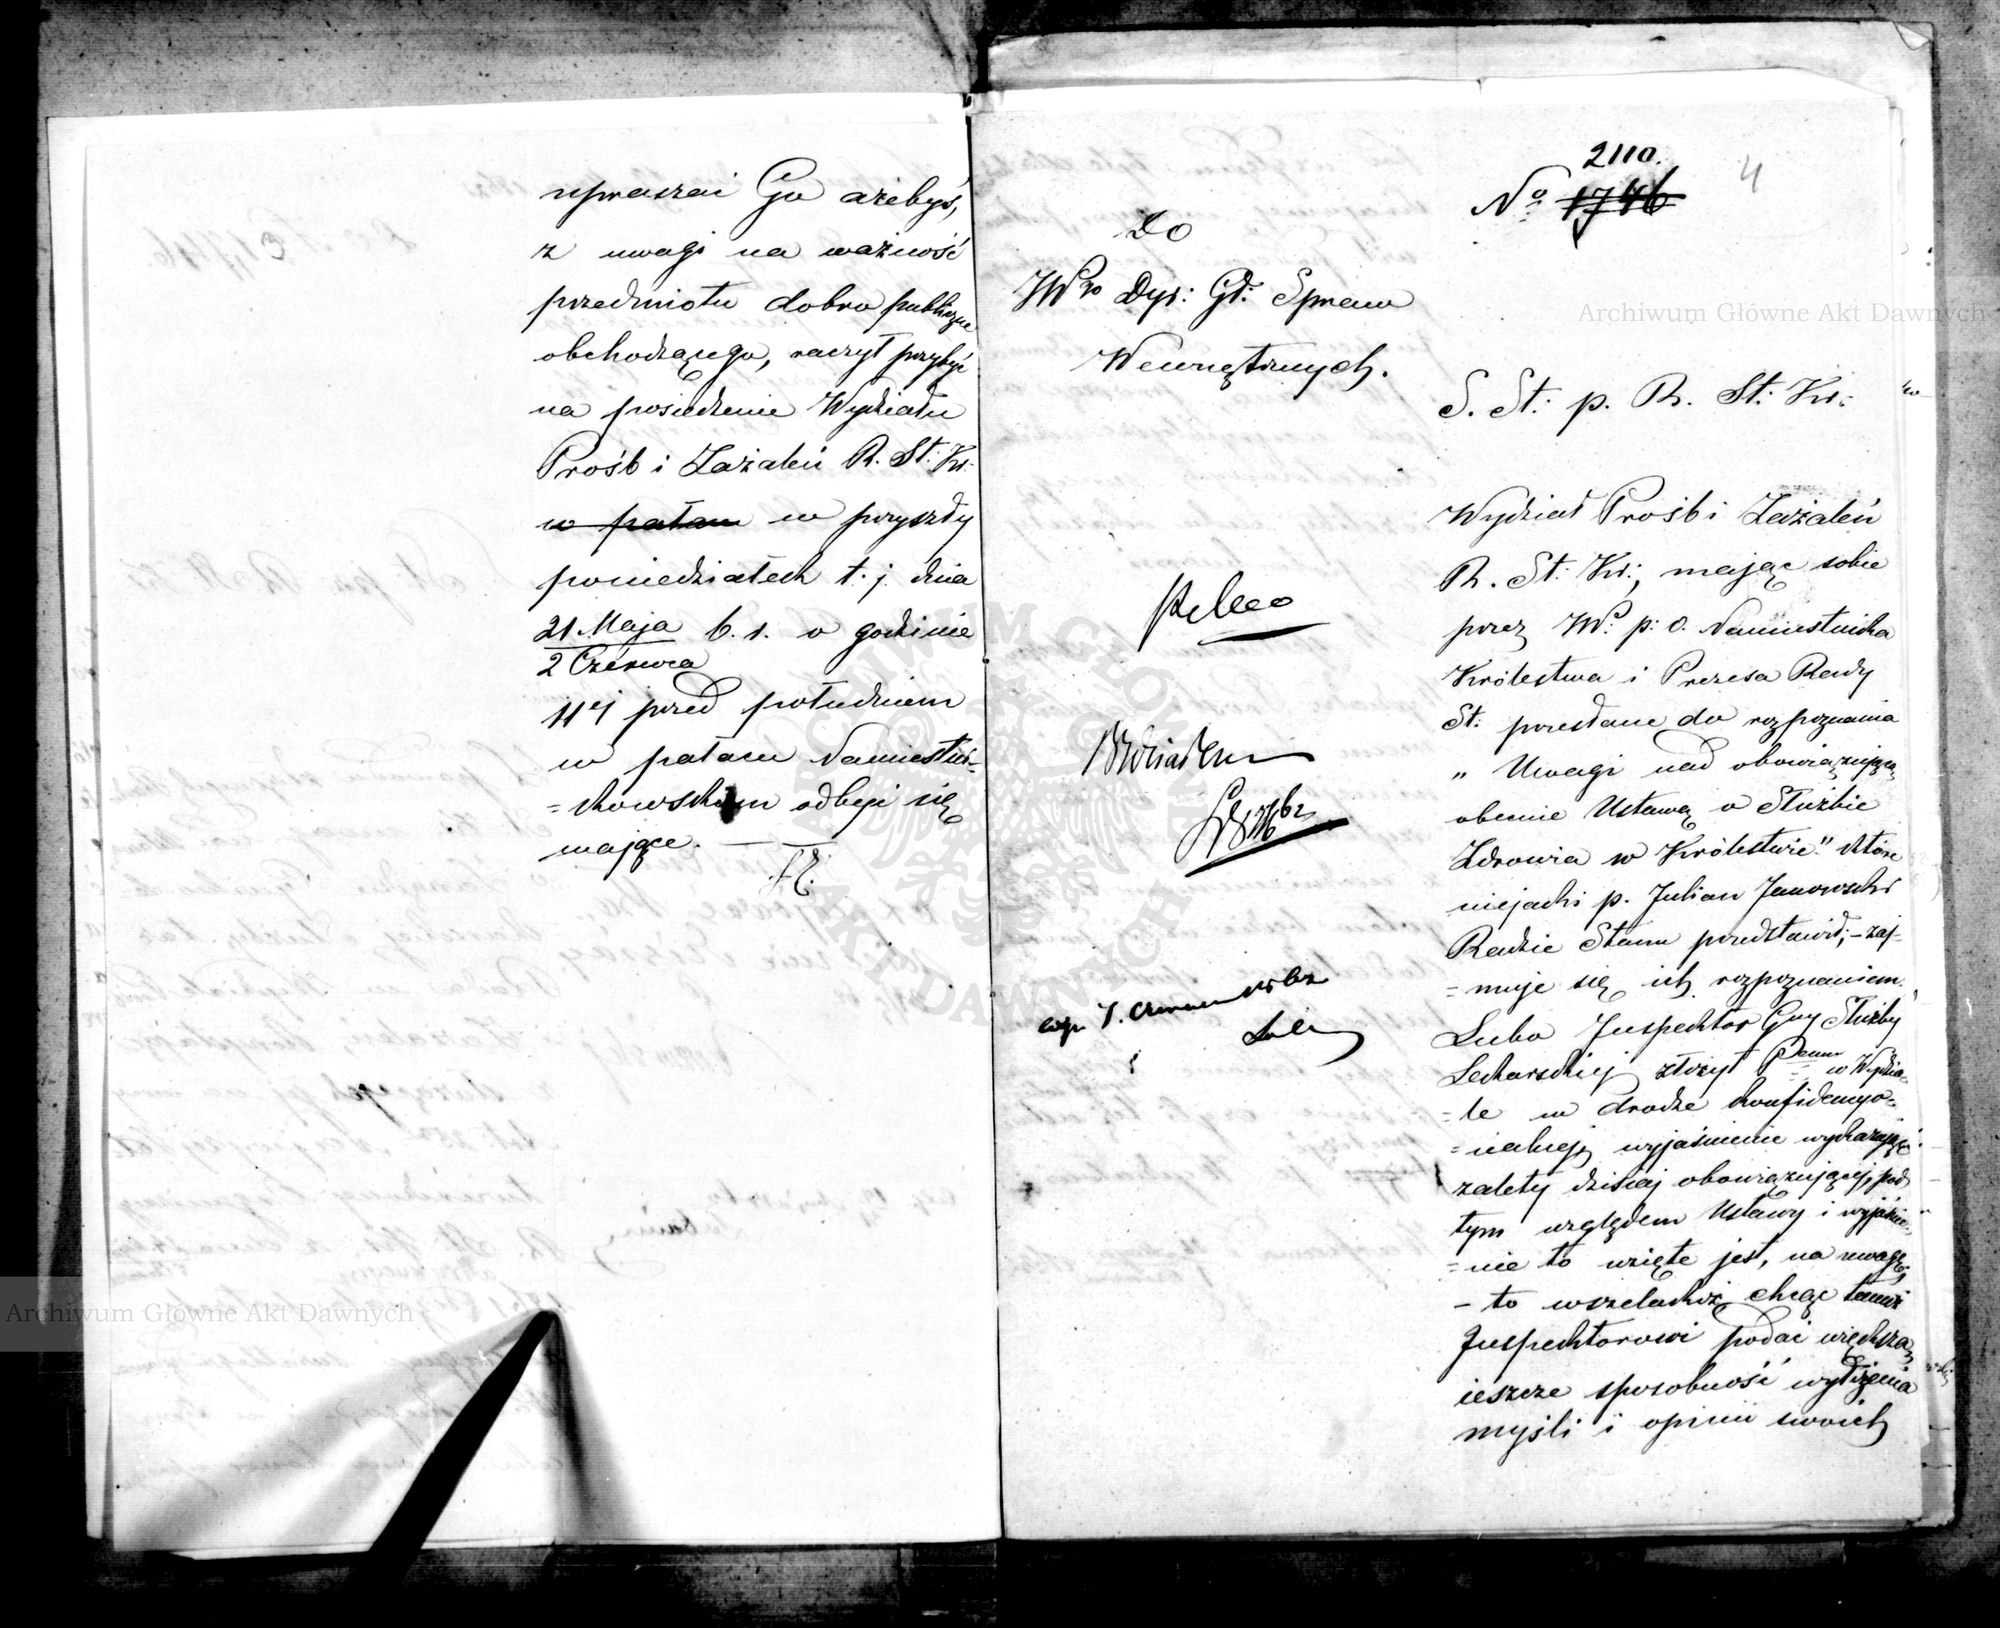 upraszać Go ażebyś,
z uwagi na ważność
przedmiotu dobro publiczne
obchodzącego, raczył przybyć
na posiedzenie Wydziału
Prośb i Zażaleń R. St: Kr.
w pałacu w przyszły
poniedziałek t. j. dnia
21 Maja b. r. o godzinie
2 Czérwca
11ej przed południem
w pałacu Namiestni-
=kowskim odbyć się
mające.
2110.
No 1746
4
Do
JWgo Dyr: Gł: Spraw
Wewnętrznych.
S. St: p. R. St: Kr:
Wydział Prośb i Zażaleń
R. St: Kr:, mając sobie
przez JW: p: o. Namiestnika
Królestwa i Prezesa Rady
St: przesłane do rozpoznania
„Uwagi nad obowiązującą
obecnie Ustawą o Służbie
Zdrowia w Królestwie" które
niejaki p. Julian Janowski
Radzie Stanu przedstawił; – zaj-
=muje się ich rozpoznaniem.
Lubo Inspektor Gny Służby
Lekarskiej złożył w Wydzia-
=le w drodze konfidencyo-
=nalnej wyjaśnienie wykazujące
zalety dzisiaj obowiązującej pod
tym względem Ustawy i wyjaśnie-
=nie to wzięte jest na uwagę,
– to wszelakoż chcąc temuż
Inspektorowi podać większą
ieszcze sposobność
myśli i opinii swoich
Archiwum Główne Akt Dawnych
Archiwum Główne Akt Dawnych
ARCHIWUM GŁÓWNE AKT DAWNYCH